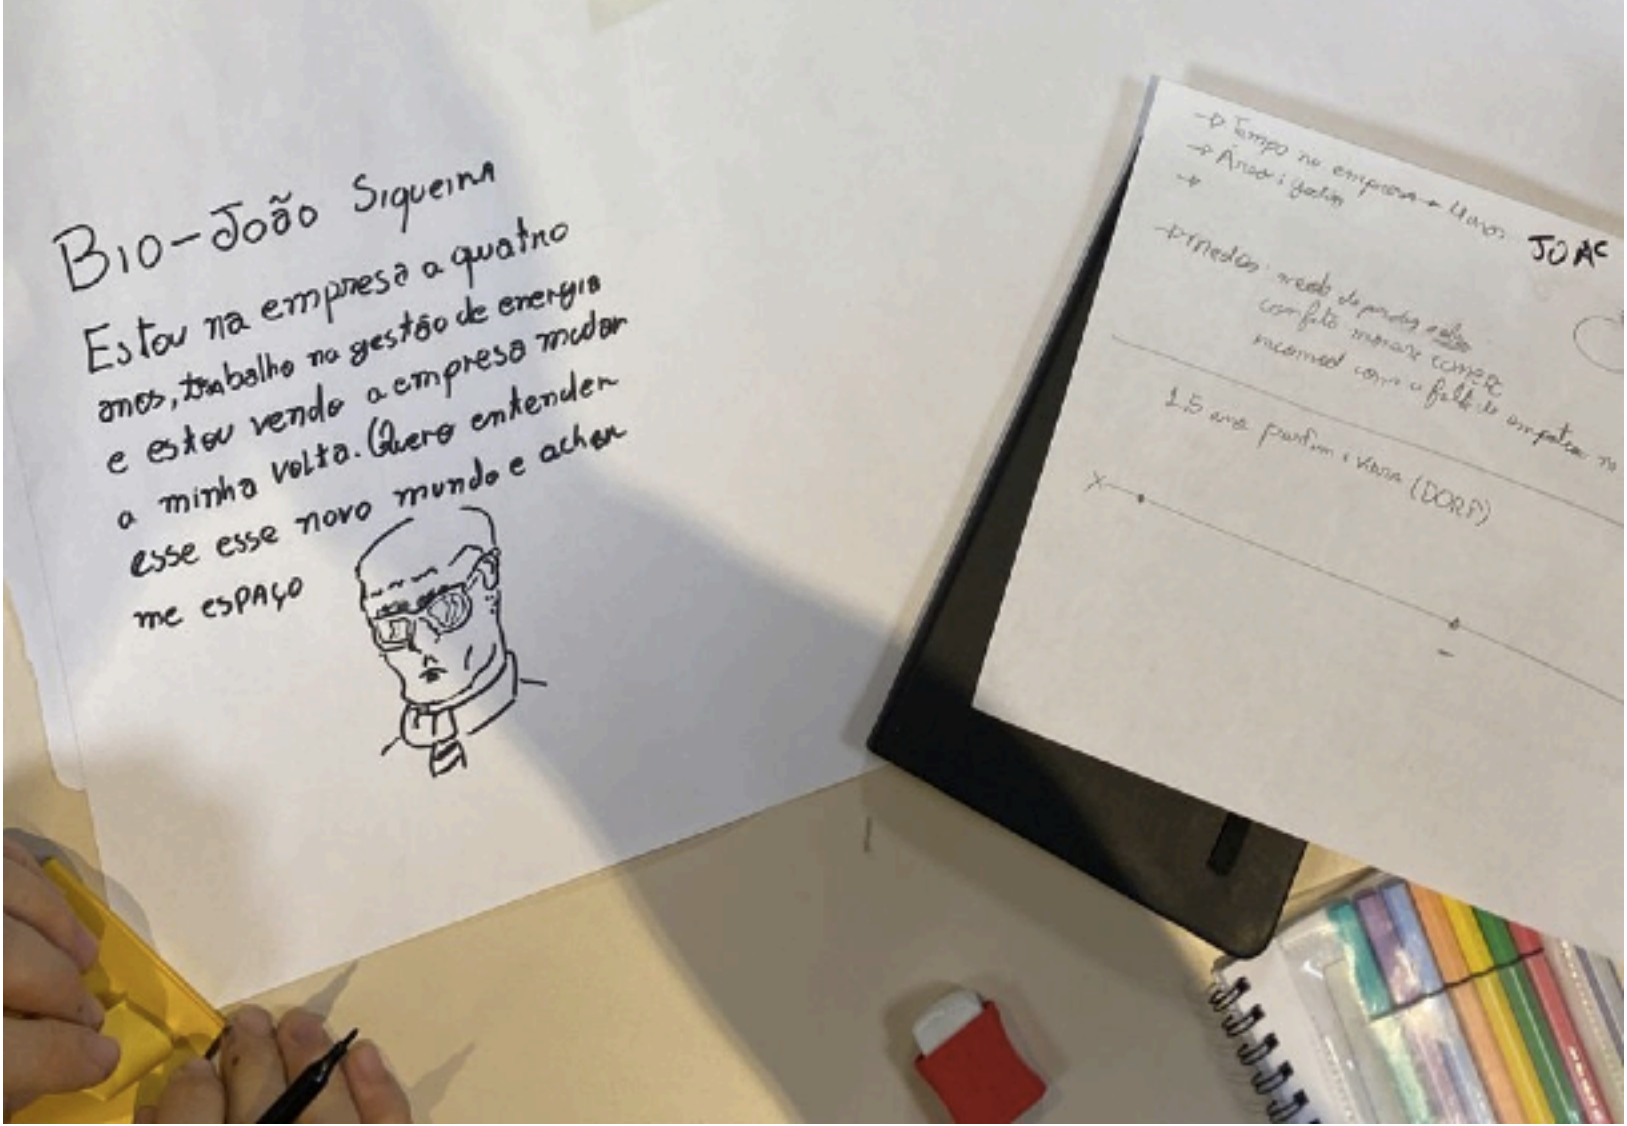 Bio-João Siqueira
Estou na empresa a quatro
anos, trabalho na gestão de energia
e estou vendo a empresa mudar
a minha volta. Quero entender
esse esse novo mundo e achar
me espaço
→ Tempo na empresa → 4 anos
→ Área: gestão
JOAC
→ Medos: medo de perder
incomod com a falta de empatia no
1,5 ano (DORP)
X